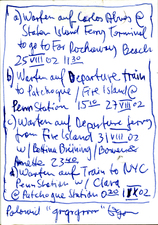 a) Warten auf Carlos Abids @
Staten Island Ferry Terminal
to go to Far Rockaway Beach
25 VIII 02 1130
b) Warten auf Departure Train
to Patchogue / Fire Island @
Penn Station 1510 27 VIII 02
c) Warten auf Departure ferry
from Fire Island 31 VIII 02
w/ Bettina Brüning / Bower &
Annette 2340
d) Warten auf Train to NYC
Penn Station w/ Clara
@ Patchogue Station 0030 IX 02
"grqrqrrrr"